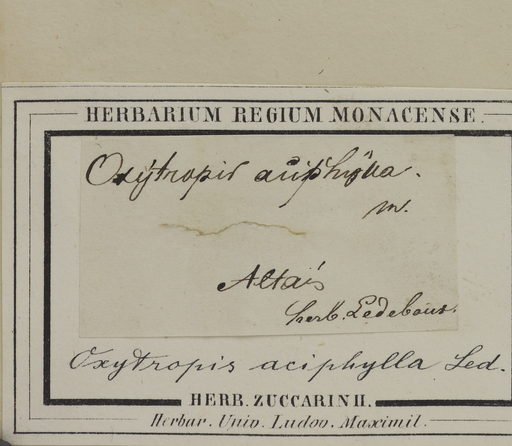 HERBARIUM REGIUM MONACENSE.
Oxytropis aciphylla.
m.
Altais
herb. Ledebour.
Oxytropis aciphylla Led.
HERB. ZUCCARINII.
Herbar. Univ. Ludov. Maximil.